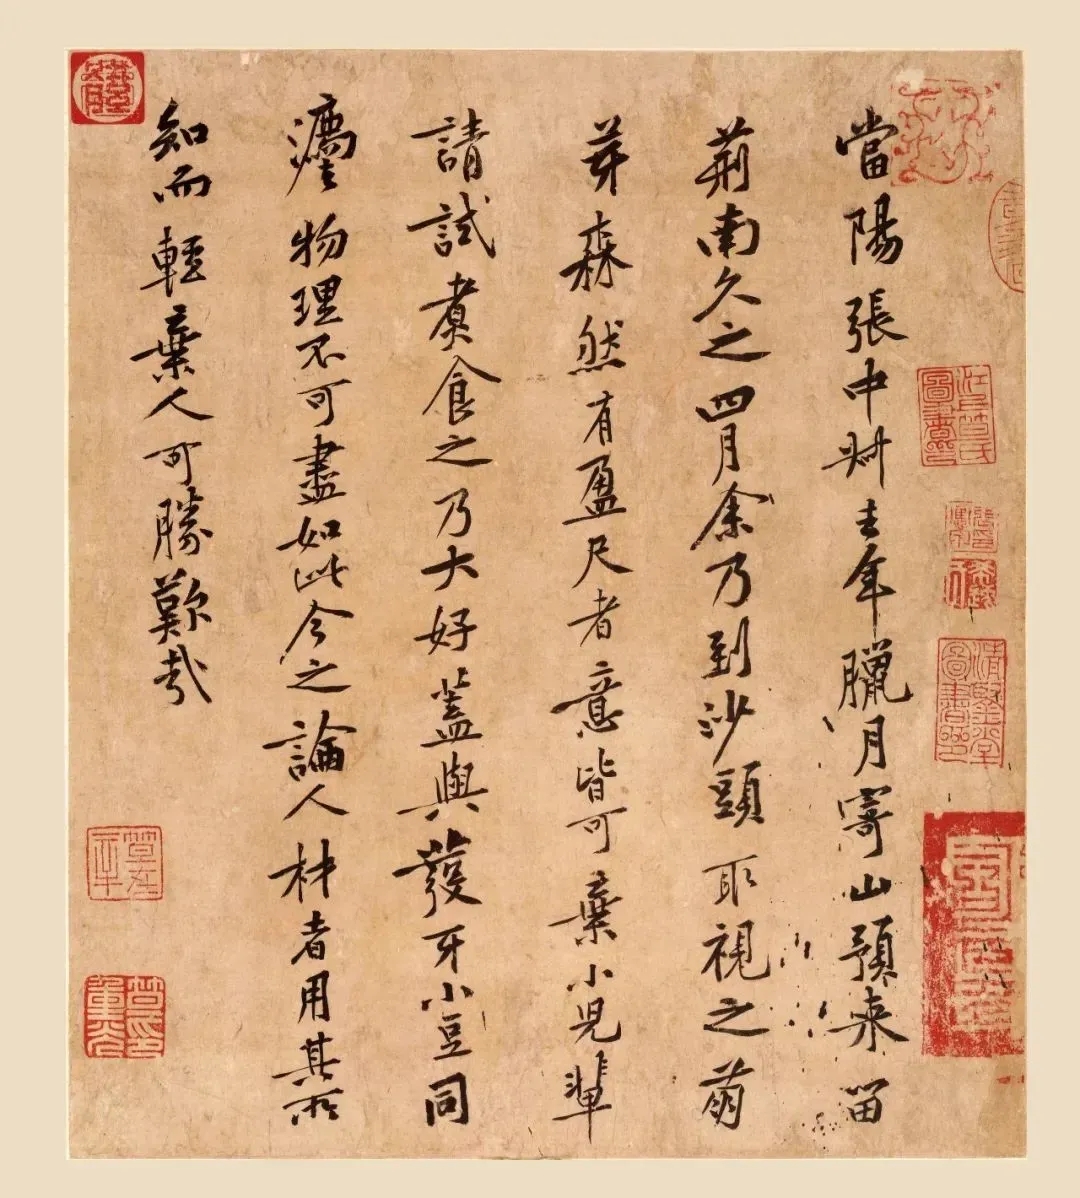 當陽張中叔去年臘月寄山預來留
荊南久之四月余乃到沙頭取視之萌
芽森然有盈尺者意皆可棄小兒輩
請試煮食之乃大好蓋與發牙小豆同
灋物理不可盡如此今之論人材者用其所
知而輕棄人可勝歎哉
江上笪氏圖書印
笪重光印